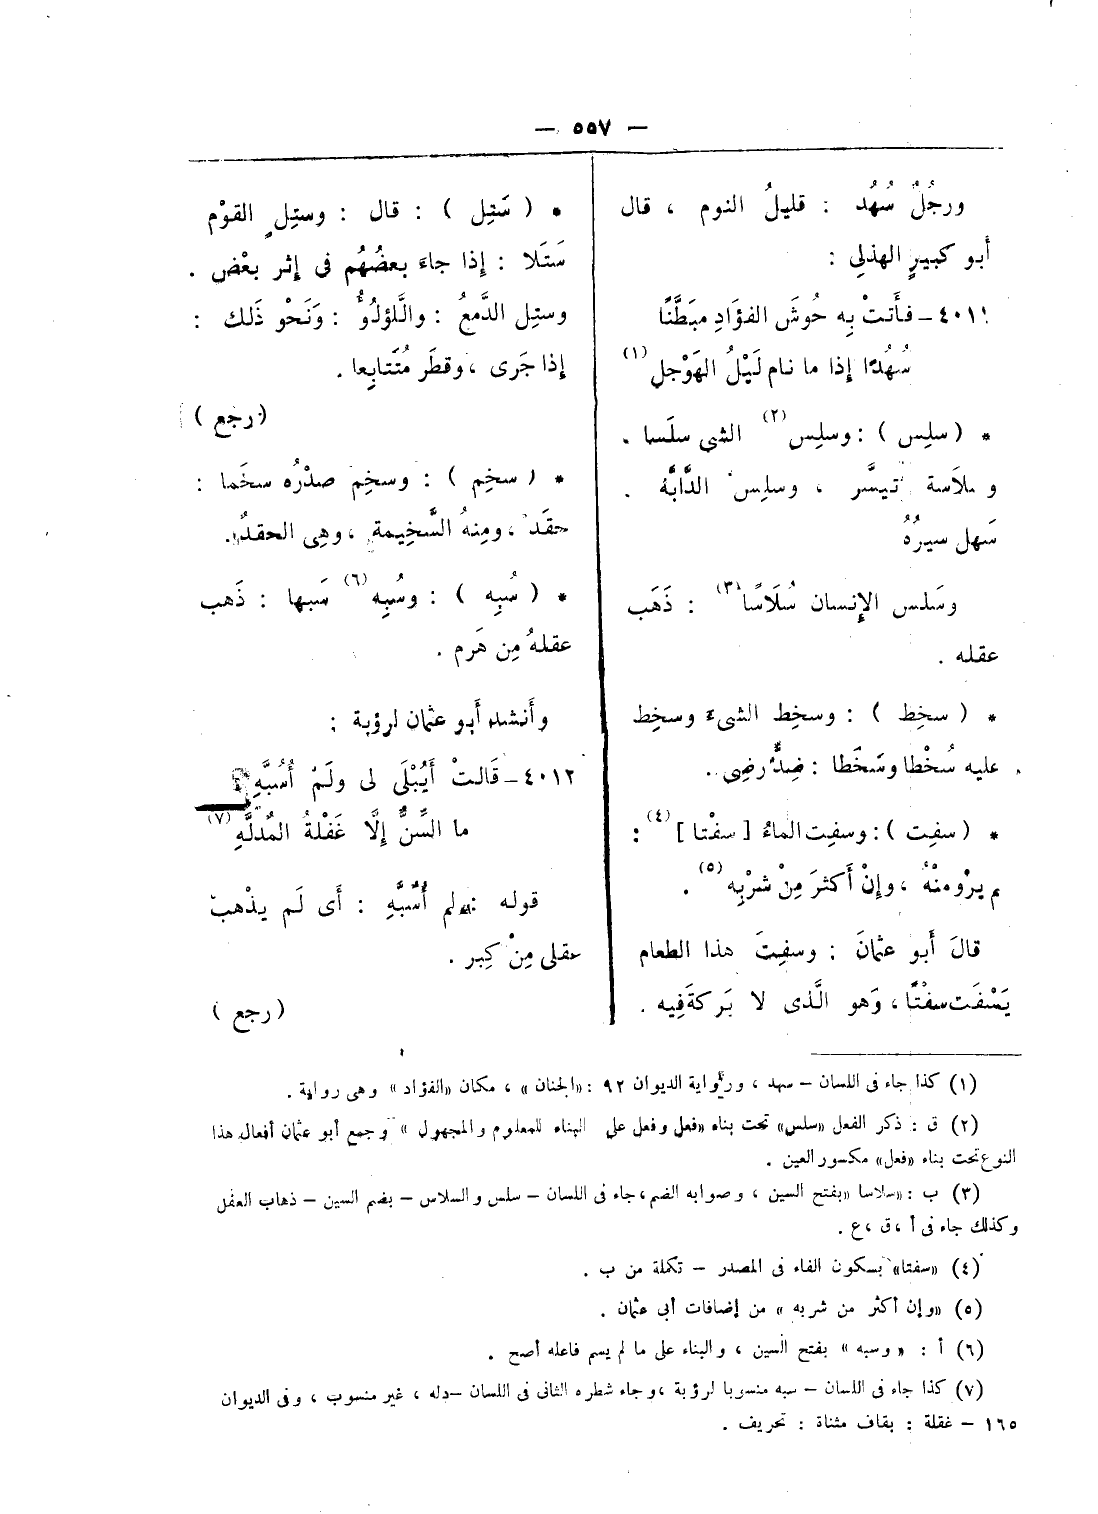 — ٥٥٧ —
ورجُلٌ سُهُد : قليلُ النوم ، قال
أبو كبيرٍ الهذلِى :
٤٠١١ – فأَتتْ بِه حُوشَ الفؤَادِ مبَطَّنًا
سُهُدًا إذا ما نام لَيْلُ الهَوْجلِ (١)
* ( سلِس ) : وسلِس (٢) الشىِ سلَسا .
و سلاَسة تيسَّر ، وسلِس الدَّابَّةُ .
سَهل سيرُهُ
وسَلس الإِنسان سُلَاسًا (٣) : ذَهَب
عقله .
* ( سخِط ) : وسخِط الشىءَ وسخِط
عليه سُخْطا وسَخَطا : ضِدُّ رضِى .
* ( سفِت ) : وسفِت الماءُ [ سفْتا ] (٤) :
م يرْو منْهُ ، وإنْ أَكثرَ مِنْ شرْبِه (٥) .
قالَ أَبو عثمانَ : وسفِتَ هذا الطعام
يَسْفَت سفْتًا ، وَهو الَّذى لا بَركةَ فِيه .
* ( سَتِل ) : قال : وستِل القوْم
سَتَلا : إذا جاءَ بعضُهُم فى إثر بعْض .
وستِل الدَّمعُ : واللُّؤلُؤُ : وَنَحْو ذَلك :
إذا جَرى ، وقطَر مُتَتابِعا .
( رجع )
* ( سخِم ) : وسخِم صدْرُه سخَما :
حقَد ، ومِنهُ السَّخِيمة ، وهِى الحقدُ .
* ( سُبِه ) : وسُبِه (٦) سَبها : ذَهب
عقلهُ مِن هَرم .
وأَنشد أَبو عثمان لرؤبة :
٤٠١٢ – قَالتْ أُبَيْلَى لى ولَمْ أُسَبَّهِ
ما السِّنُّ إلَّا غَفْلةُ المُدلَّهِ (٧)
قوله : ولم أُسَبَّهِ : أَى لَم يذْهبْ
عقلى مِنْ كِبر .
( رجع )
(١) كذا جاء فى اللسان – سهد ، ورواية الديوان ٩٢ : «الجنان» ، مكان «الفؤاد» وهى رواية .
(٢) ق : ذكر الفعل «سلس» تحت بناء «فعل وفعل على البناء للمعلوم والمجهول » وجمع أبو عثمان أفعال هذا
النوع تحت بناء «فعل» مكسور العين .
(٣) ب : «سلاسا «بفتح السين ، وصوابه الضم ، جاء فى اللسان – سلس والسلاس – بضم السين – ذهاب العقل
وكذلك جاء فى أ ، ق ، ع .
(٤) «سفتا» بسكون الفاء فى المصدر – تكملة من ب .
(٥) «وإن أكثر من شربه » من إضافات أبى عثمان .
(٦) أ : « وسبه » بفتح السين ، والبناء على ما لم يسم فاعله أصح .
(٧) كذا جاء فى اللسان – سبه منسوبا لرؤبة ، وجاء شطره الثانى فى اللسان – دله ، غير منسوب ، وفى الديوان
١٦٥ – غقلة : بقاف مثناة : تحريف .